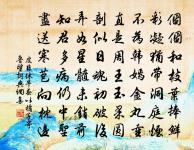 個個和枝葉捧鮮
彩凝猶帶洞庭煙
不為韓嫣金丸重
直是周王玉果圓
剖似日魂初破後
弄如星髓未銷前
知君多病仍中聖
盡送寒苞向枕邊